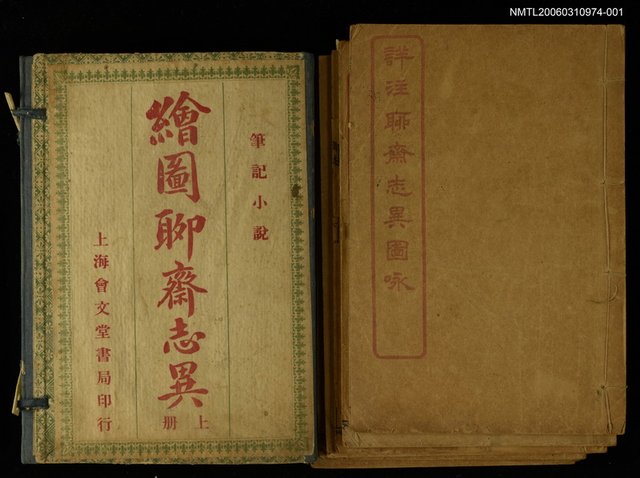 NMTL20060310974-001
筆記小說
繪圖聊齋志異
上册
上海會文堂書局印行
詳注聊齋志異圖咏